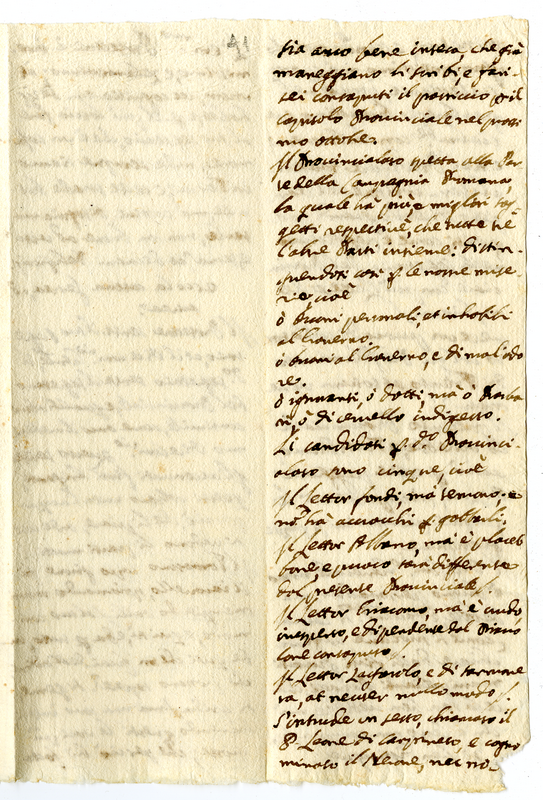 91
sia anco bene intesa che già
maneggiano li scribi, e fari-
sei il pasticcio p il
capitolo Provinciale nel prossi
mo ottobre.
Il Provincialato spetta alla Par
te della Campagnia Romana,
la quale hà più, e migliori sog-
getti respectivè, che tutte tré
l'altre Parti insieme: distin-
guendosi così p le nostre mise-
rie, cioè
ò buoni personali, et inhabili
al Governo.
ò buoni al Governo, e di mal'odo
re.
ò ignoranti, ò dotti, mà ò Barba
ri, ò di cervello indigesto.
Li candidati p d.o Provinci-
alato sono cinque, cioè
Il Lettor fondi, mà e
nō hà
Il Lettor Albano, mà è
bone e puoco sarà differente
dal presente Provinciale.
Il Lettor Giacomo, mà è crudo,
inesperto, e dipendente dal
Il Lettor e di
ra, at neuter nullo modo.
S'intrude un sesto, chiamato il
P. Leone di Carpineto, e cogno
minato il Nerone, nec no-